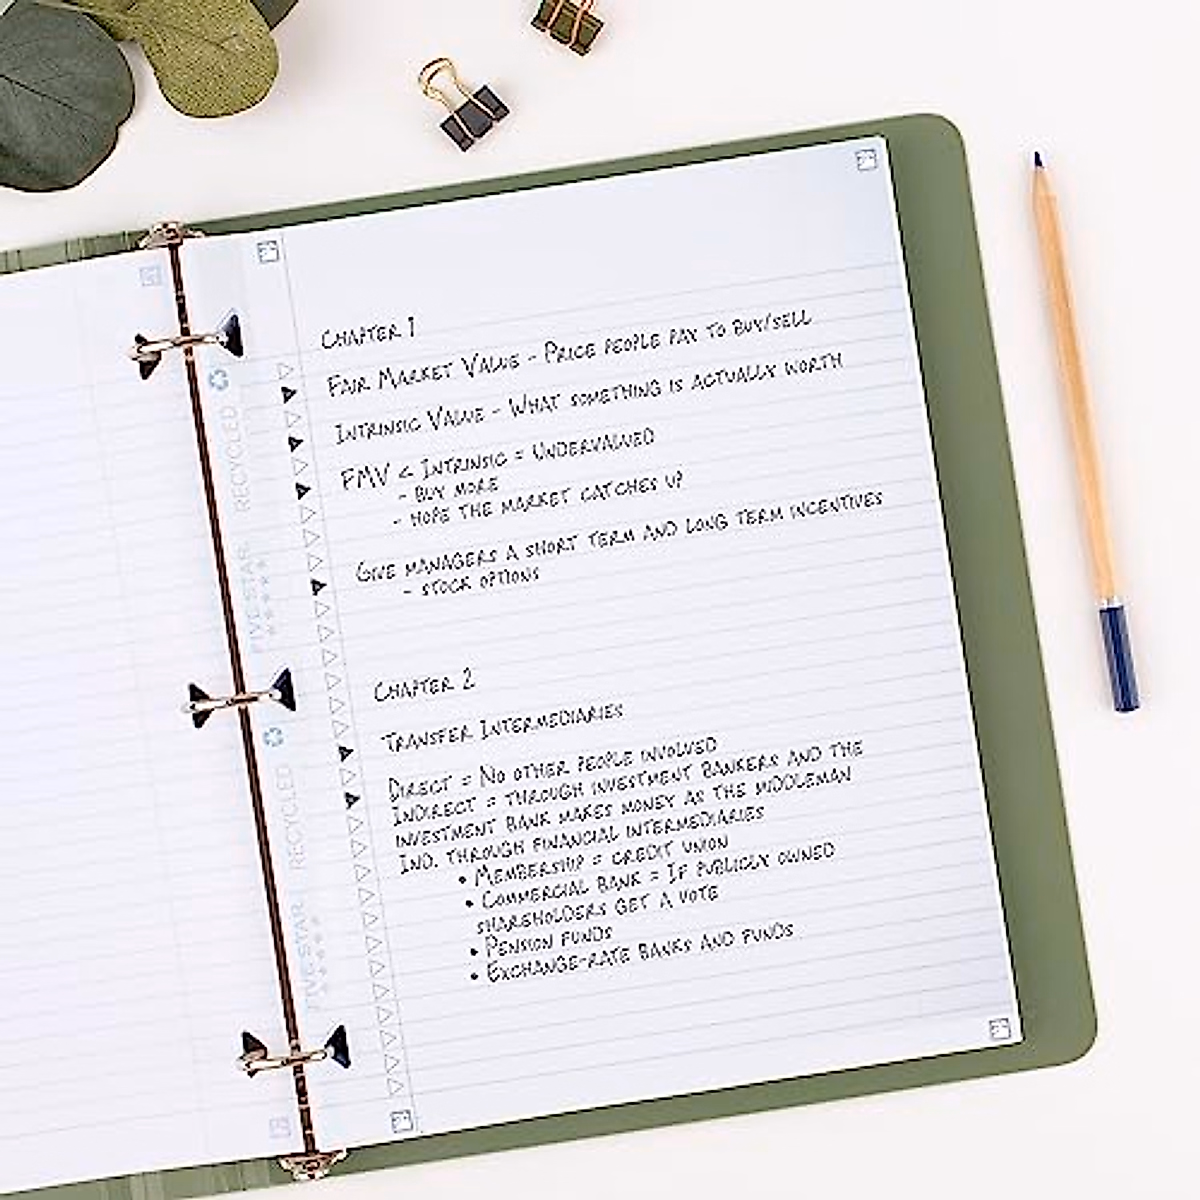 RECYCLED
FIVE STAR
RECYCLED
FIVE STAR
CHAPTER 1
FAIR MARKET VALUE - PRICE PEOPLE PAY TO BUY/SELL
INTRINSIC VALUE - WHAT SOMETHING IS ACTUALLY WORTH
FMV < INTRINSIC = UNDERVALUED
- BUY MORE
- HOPE THE MARKET CATCHES UP
GIVE MANAGERS A SHORT TERM AND LONG TERM INCENTIVES
- STOCK OPTIONS
CHAPTER 2
TRANSFER INTERMEDIARIES
DIRECT = NO OTHER PEOPLE INVOLVED
INDIRECT = THROUGH INVESTMENT BANKERS AND THE
INVESTMENT BANK MAKES MONEY AS THE MIDDLEMAN
IND. THROUGH FINANCIAL INTERMEDIARIES
• MEMBERSHIP = CREDIT UNION
• COMMERCIAL BANK = IF PUBLICLY OWNED
SHAREHOLDERS GET A VOTE
• PENSION FUNDS
• EXCHANGE-RATE BANKS AND FUNDS